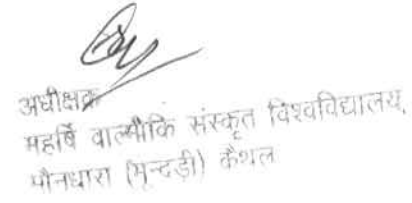 अधीक्षक
महर्षि वाल्मीकि संस्कृत विश्वविद्यालय,
मौनधारा (मून्दड़ी) कैथल